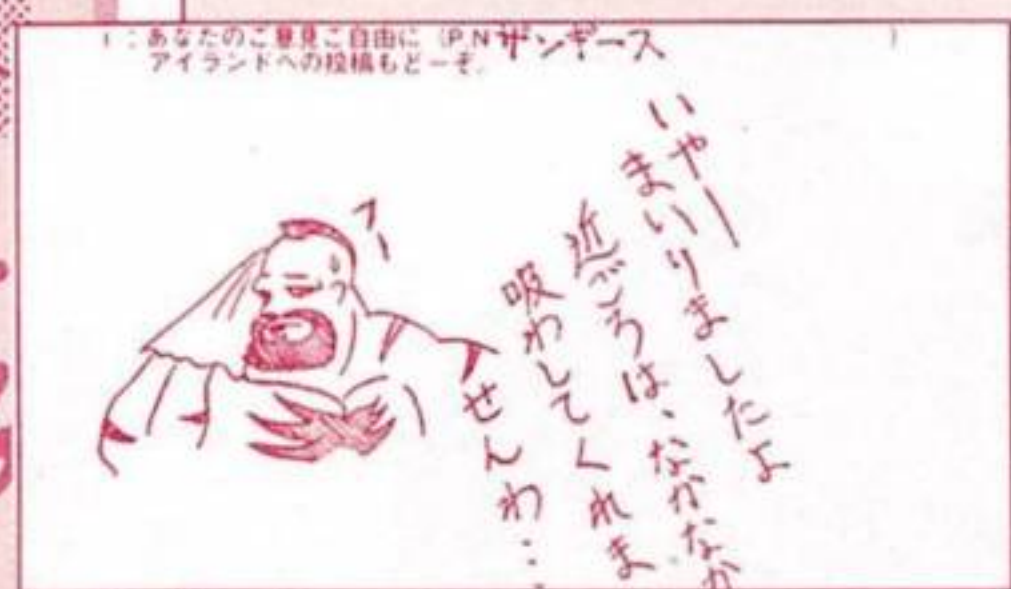 1:あなたのご意見ご自由に (P.N ザンギース )
アイランドへの投稿もどーぞ.
フー
いやー
まいりましたよ
近ごろは、なかなか
吸わしてくれま
せんわ…